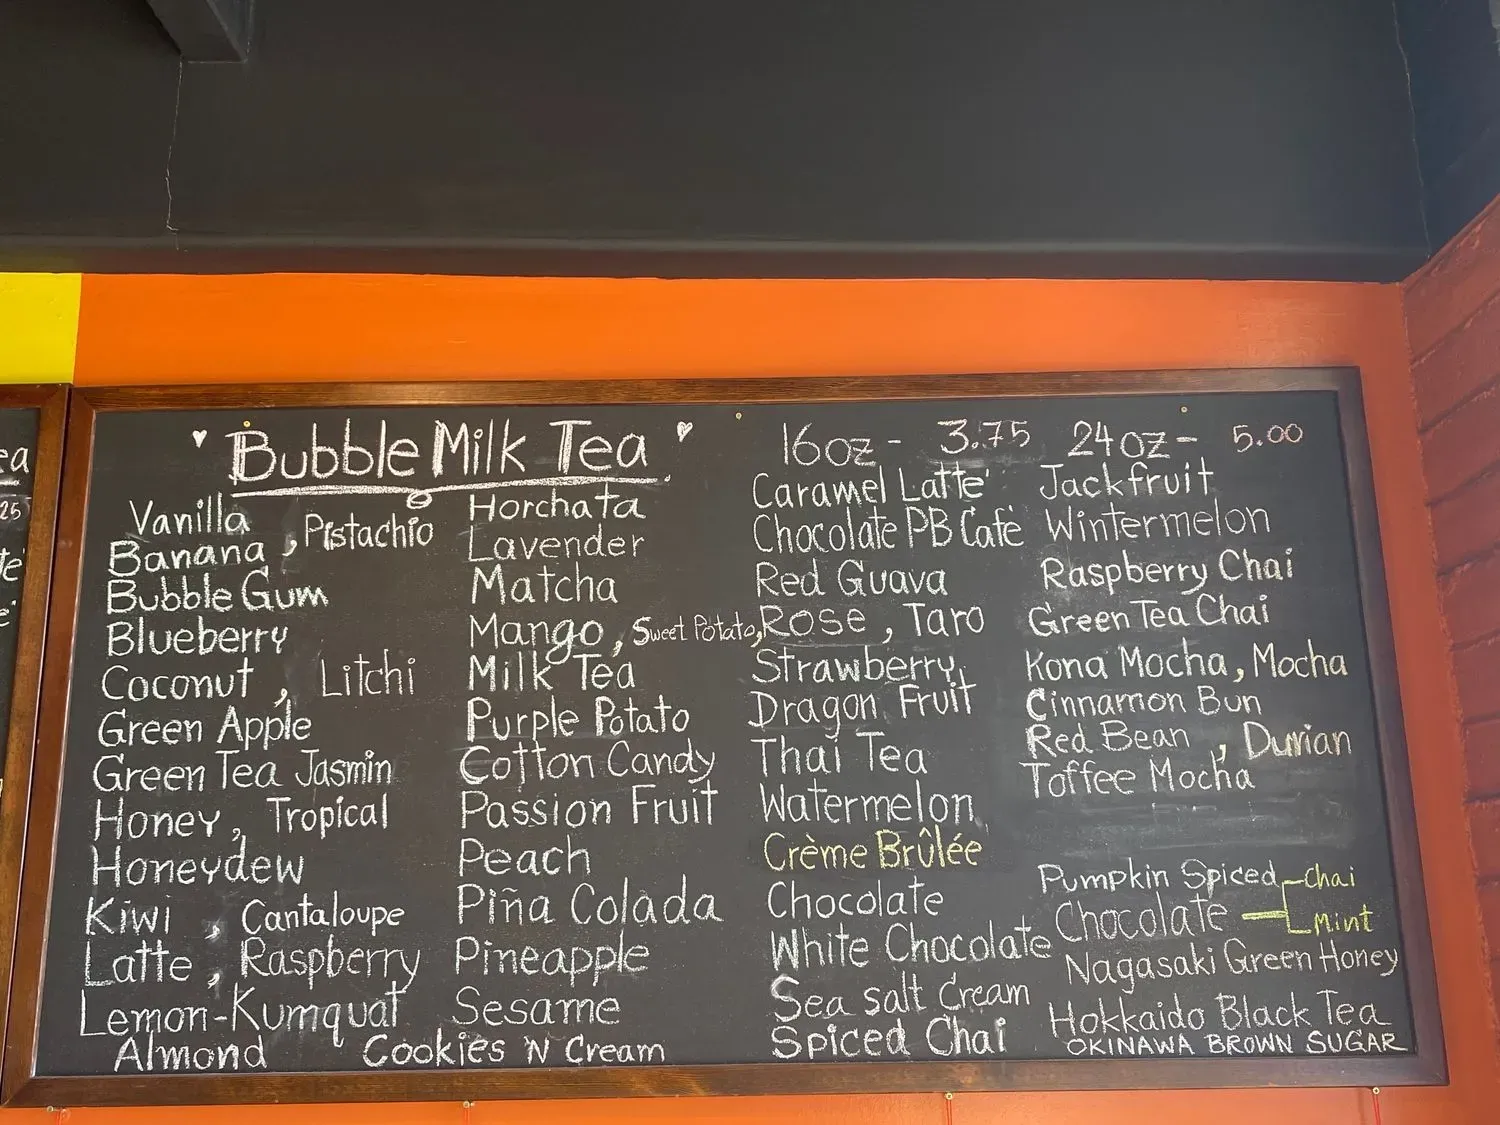 ♥ Bubble Milk Tea ♥
16oz - 3.75 24oz - 5.00
Vanilla
Banana , Pistachio
Bubble Gum
Blueberry
Coconut , Litchi
Green Apple
Green Tea Jasmin
Honey, Tropical
Honeydew
Kiwi , Cantaloupe
Latte , Raspberry
Lemon-Kumquat
Almond
Horchata
Lavender
Matcha
Mango , Sweet Potato,
Milk Tea
Purple Potato
Cotton Candy
Passion Fruit
Peach
Piña Colada
Pineapple
Sesame
Cookies 'N Cream
Caramel Latte'
Chocolate PB Café
Red Guava
Rose , Taro
Strawberry
Dragon Fruit
Thai Tea
Watermelon
Crème Brûlée
Chocolate
White Chocolate
Sea salt Cream
Spiced Chai
Jackfruit
Wintermelon
Raspberry Chai
Green Tea Chai
Kona Mocha, Mocha
Cinnamon Bun
Red Bean , Durian
Toffee Mocha
Pumpkin Spiced - Chai
Chocolate - Mint
Nagasaki Green Honey
Hokkaido Black Tea
OKINAWA BROWN SUGAR
ea
25
te'
e'